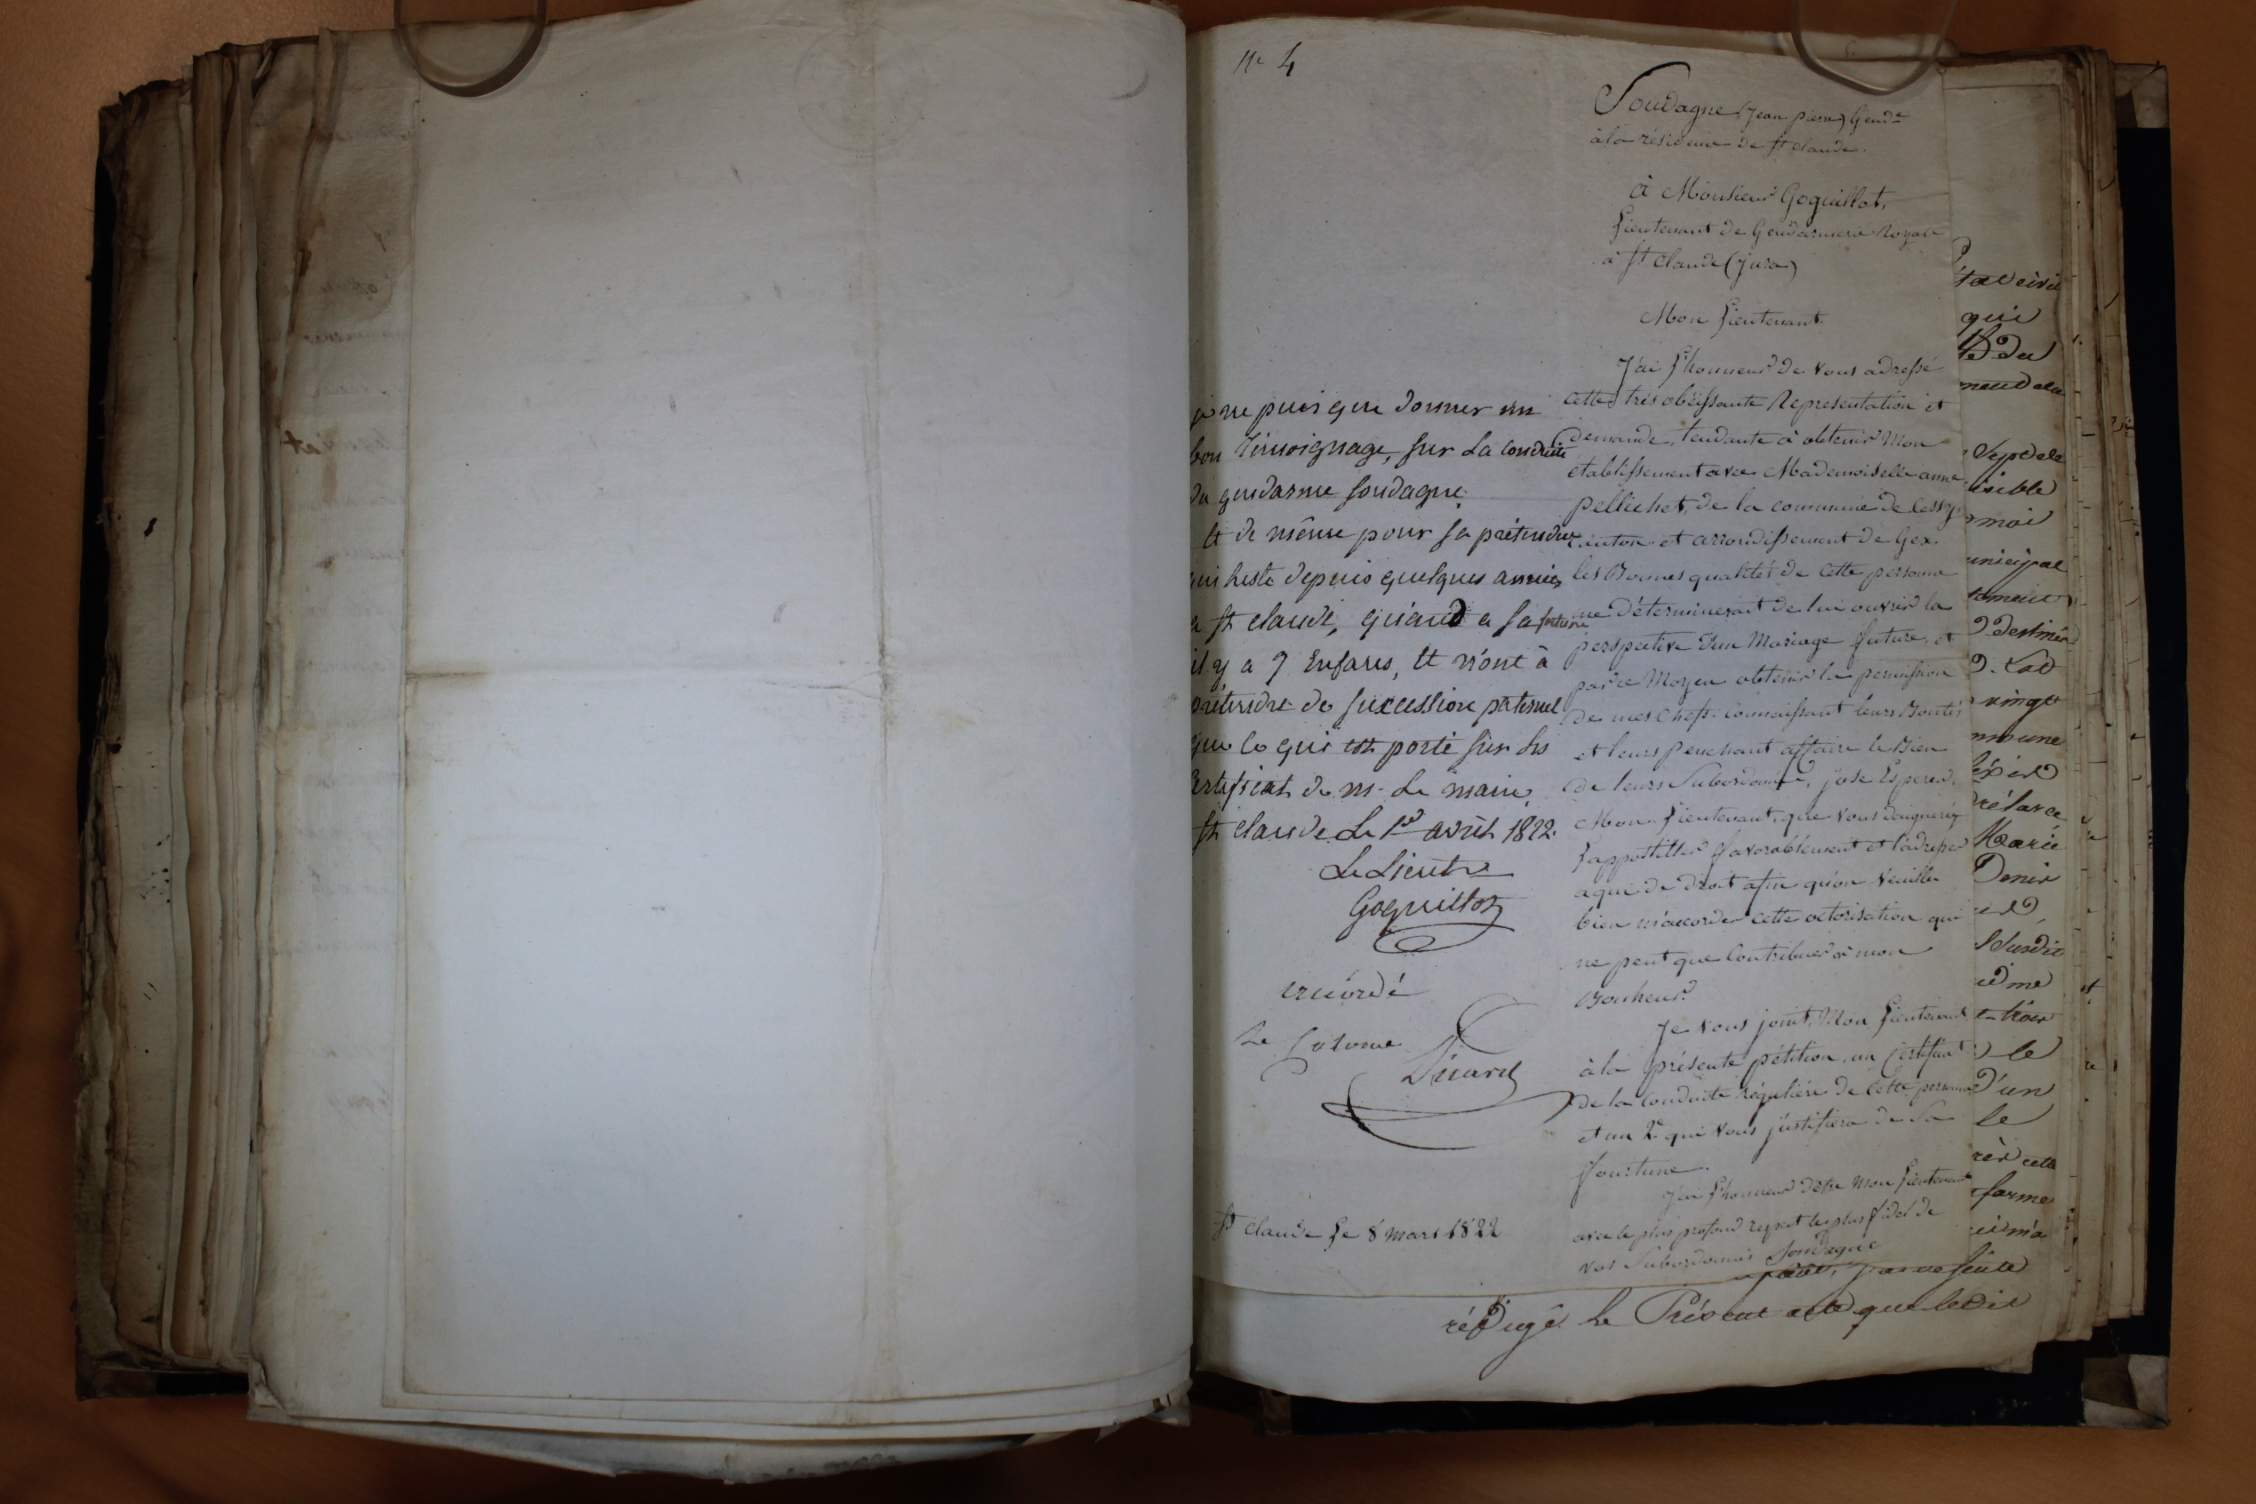 Nº 4
Soudagne (Jean pierre) Gend.e
à la résidence de St Claude.
à Monsieur Goguillot,
Lieutenant de Gendarmerie Royale
à St Claude (Jura)
Mon Lieutenant
J'ai l'honneur de vous adressé
cette très obéissante Representation et
demande, tendante à obtenir Mon
etablissement avec Mademoiselle anne
pellichet, de la commune de Cessy
canton et arrondissement de Gex.
les Bonnes qualités de cette personne
me déterminerait de lui ouvrir la
perspective d'un Mariage future, et
par ce Moyen obtenir la permission
de mes Chefs. Connaissant leurs Bontés
et leurs penchant affaire le Bien
de leurs Subordonné, j'ose Esperer,
Mon Lieutenant, que vous daignerez
l'appostiller favorablement et l'adresser
a qui de droit afin qu'on veuille
bien m'accorder cette autorisation qui
ne peut que Contribuer à mon
Bonheur.
Je vous joint, Mon Lieutenant
à la présente pétition, un Certificat
de la conduite régulière de cette personne
et un 2e qui vous justifiera de Sa
fourtune.
J'ai l'honneur d'être Mon Lieutenant
avec le plus profond respect le plus fidel de
vos Subordonnés Soudagne
St Claude Le 8 mars 1822
je ne puis que donner un
bon témoignage, sur la conduite
du gendarme Soudagne.
Et de même pour sa prétendue
qui reste depuis quelques années
a St Claude, quand a sa fortune
il y a 7 Enfans, Et n'ont à
prétendre de succession paternel
que ce qui est porté sur les
Certificat de m. le maire,
St Claude Le 1er avril 1822.
Le Lieutt
Goguillot
accordé
Le Colonel
état civil
qui
du
visible
moi
municipal
destiné
vingt
commune
Marie
Denis
Susdit
me
trois
le
d'un
le
cette
forme
rédigé le Présent acte que ledit